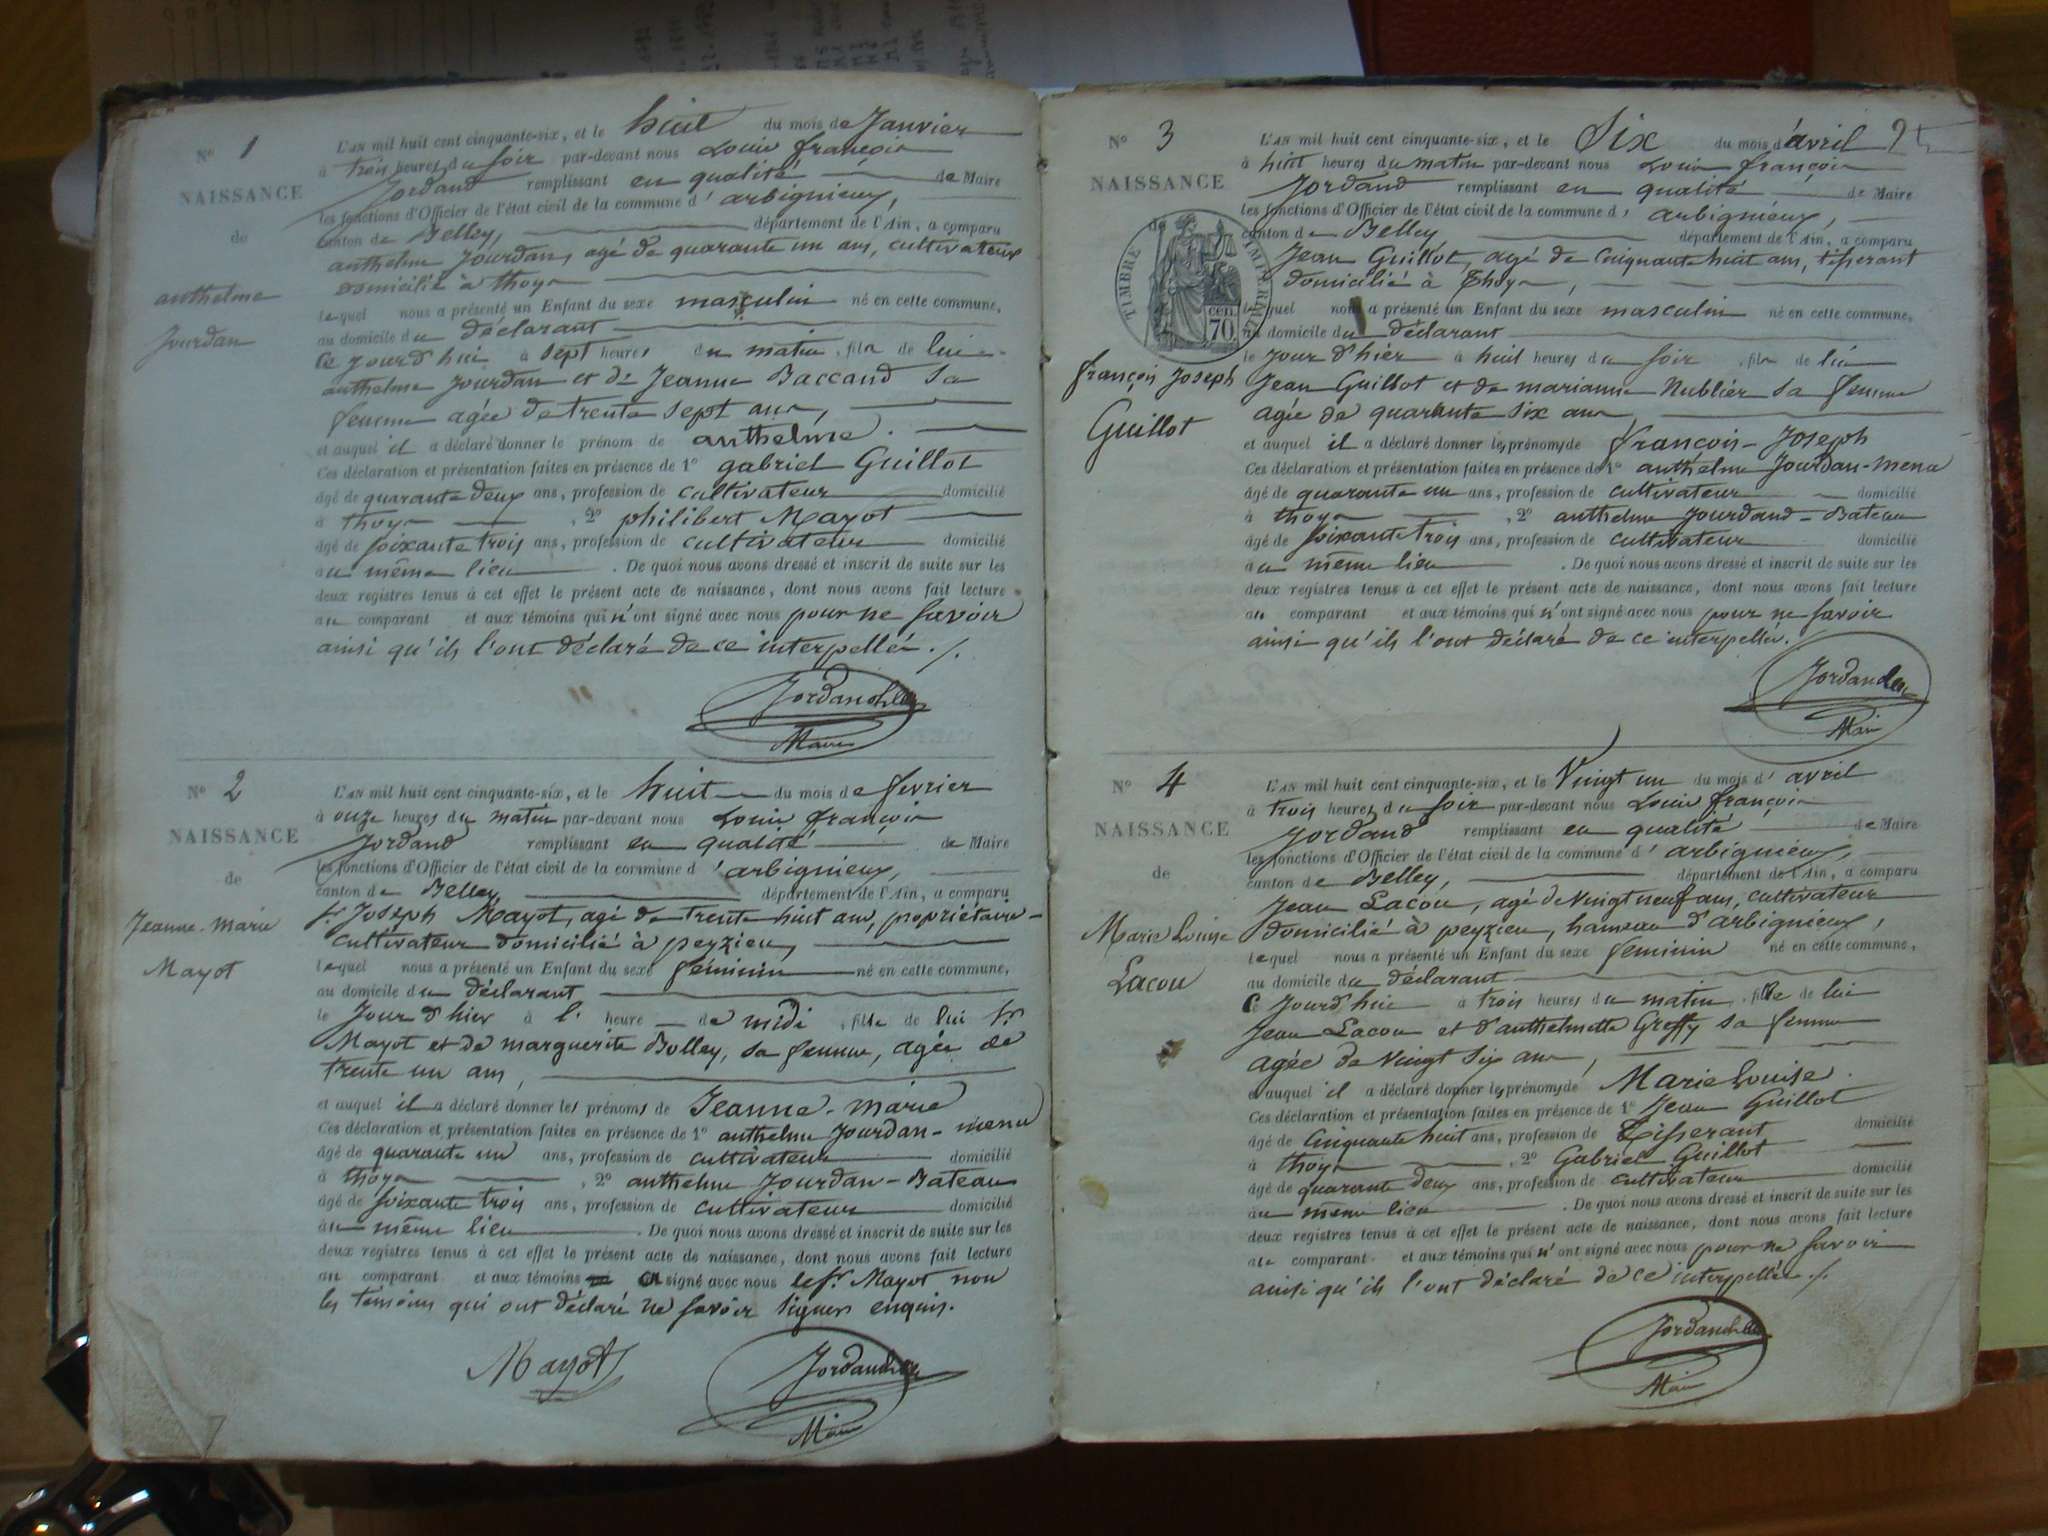 N° 1
NAISSANCE
de
anthelme
Jourdan
L'AN mil huit cent cinquante-six, et le huit du mois de Janvier
à trois heures du soir par-devant nous Louis françois
Jordand remplissant en qualité de Maire
les fonctions d'Officier de l'état civil de la commune d' arbignieux,
canton de Belley, département de l'Ain, a comparu
anthelme Jourdan, agé de quarante un ans, cultivateur
domicilié à thoys
lequel nous a présenté un Enfant du sexe masculin né en cette commune,
au domicile du déclarant
Ce jourd'hui à sept heures du matin, fils de lui
anthelme Jourdan et de Jeanne Baccand sa
femme agée de trente sept ans,
et auquel il a déclaré donner le prénom de anthelme.
Ces déclaration et présentation faites en présence de 1° gabriel Guillot
âgé de quarante deux ans, profession de cultivateur domicilié
à thoys , 2° philibert Mayot
âgé de soixante trois ans, profession de cultivateur domicilié
au même lieu . De quoi nous avons dressé et inscrit de suite sur les
deux registres tenus à cet effet le présent acte de naissance, dont nous avons fait lecture
au comparant et aux témoins qui n'ont signé avec nous pour ne savoir
ainsi qu'ils l'ont déclaré de ce interpellés./.
Maire
N° 2
NAISSANCE
de
Jeanne-marie
Mayot
L'AN mil huit cent cinquante-six, et le huit du mois de fevrier
à onze heures du matin par-devant nous Louis françois
Jordand remplissant en qualité de Maire
les fonctions d'Officier de l'état civil de la commune d' arbignieux,
canton de Belley, département de l'Ain, a comparu
Sr Joseph Mayot, agé de trente huit ans, propriétaire-
cultivateur domicilié à peyzieu,
lequel nous a présenté un Enfant du sexe féminin né en cette commune,
au domicile du déclarant
le Jour d'hier à l' heure de midi, fille de lui Sr
Mayot et de marguerite Bolley, sa femme, agée de
trente un ans,
et auquel il a déclaré donner les prénoms de Jeanne-marie
Ces déclaration et présentation faites en présence de 1° anthelme Jourdan-menu
âgé de quarante un ans, profession de cultivateur domicilié
à thoys , 2° anthelme Jourdan-Bateau
âgé de soixante trois ans, profession de cultivateur domicilié
au même lieu . De quoi nous avons dressé et inscrit de suite sur les
deux registres tenus à cet effet le présent acte de naissance, dont nous avons fait lecture
au comparant et aux témoins signé avec nous le Sr Mayot non
les témoins qui ont déclaré ne savoir signer enquis.
Mayot
Maire
N° 3
NAISSANCE
de
TIMBRE IMPERIAL
CEN. 70
françois Joseph
Guillot
L'AN mil huit cent cinquante-six, et le Six du mois d'avril
à huit heures du matin par-devant nous Louis françois
Jordand remplissant en qualité de Maire
les fonctions d'Officier de l'état civil de la commune d' arbignieux,
canton de Belley département de l'Ain, a comparu
Jean Guillot, agé de cinquante huit ans, tisserant
domicilié à Thoys,
lequel nous a présenté un Enfant du sexe masculin né en cette commune,
au domicile du déclarant
le jour d'hier à huit heures du soir, fils de lui
Jean Guillot et de marianne Nublier sa femme
agée de quarante six ans,
et auquel il a déclaré donner les prénoms de françois-Joseph
Ces déclaration et présentation faites en présence de 1° anthelme Jourdan-menu
âgé de quarante un ans, profession de cultivateur domicilié
à thoys , 2° anthelme Jourdand-Bateau
âgé de soixante trois ans, profession de cultivateur domicilié
au même lieu . De quoi nous avons dressé et inscrit de suite sur les
deux registres tenus à cet effet le présent acte de naissance, dont nous avons fait lecture
au comparant et aux témoins qui n'ont signé avec nous pour ne savoir
ainsi qu'ils l'ont déclaré de ce interpellés.
Maire
N° 4
NAISSANCE
de
Marie Louise
Lacou
L'AN mil huit cent cinquante-six, et le Vingt un du mois d' avril
à trois heures du soir par-devant nous Louis françois
Jordand remplissant en qualité de Maire
les fonctions d'Officier de l'état civil de la commune d' arbignieux,
canton de Belley, département de l'Ain, a comparu
Jean Lacou, agé de Vingt neuf ans, cultivateur
domicilié à peyzieu, hameau d'arbignieux,
lequel nous a présenté un Enfant du sexe féminin né en cette commune,
au domicile du déclarant
Ce Jourd'hui à trois heures du matin, fille de lui
Jean Lacou et d'anthelmette Greffy sa femme
agée de Vingt Six ans,
et auquel il a déclaré donner les prénoms de Marie Louise.
Ces déclaration et présentation faites en présence de 1° Jean Guillot
âgé de Cinquante huit ans, profession de Tisserant domicilié
à thoys , 2° Gabriel Guillot
âgé de quarante deux ans, profession de cultivateur domicilié
au même lieu . De quoi nous avons dressé et inscrit de suite sur les
deux registres tenus à cet effet le présent acte de naissance, dont nous avons fait lecture
au comparant et aux témoins qui n'ont signé avec nous pour ne savoir
ainsi qu'ils l'ont déclaré de ce interpellés./.
Maire